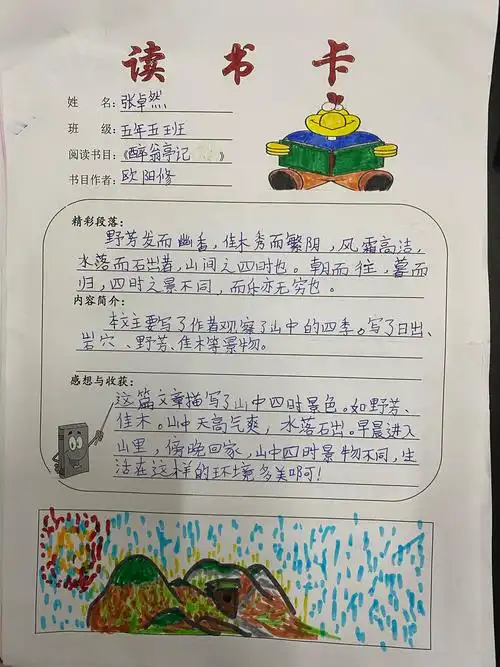 读书卡
姓 名:张卓然
班 级:五年五班
阅读书目:《醉翁亭记》
书目作者:欧阳修
精彩段落:
野芳发而幽香,佳木秀而繁阴,风霜高洁,
水落而石出者,山间之四时也。朝而往,暮而
归,四时之景不同,而乐亦无穷也。
内容简介:
本文主要写了作者观察了山中的四季。写了日出、
岩穴、野芳、佳木等景物。
感想与收获:
这篇文章描写了山中四时景色。如野芳、
佳木。山中天高气爽,水落石出。早晨进入
山里,傍晚回家,山中四时景物不同,生
活在这样的环境多美啊!